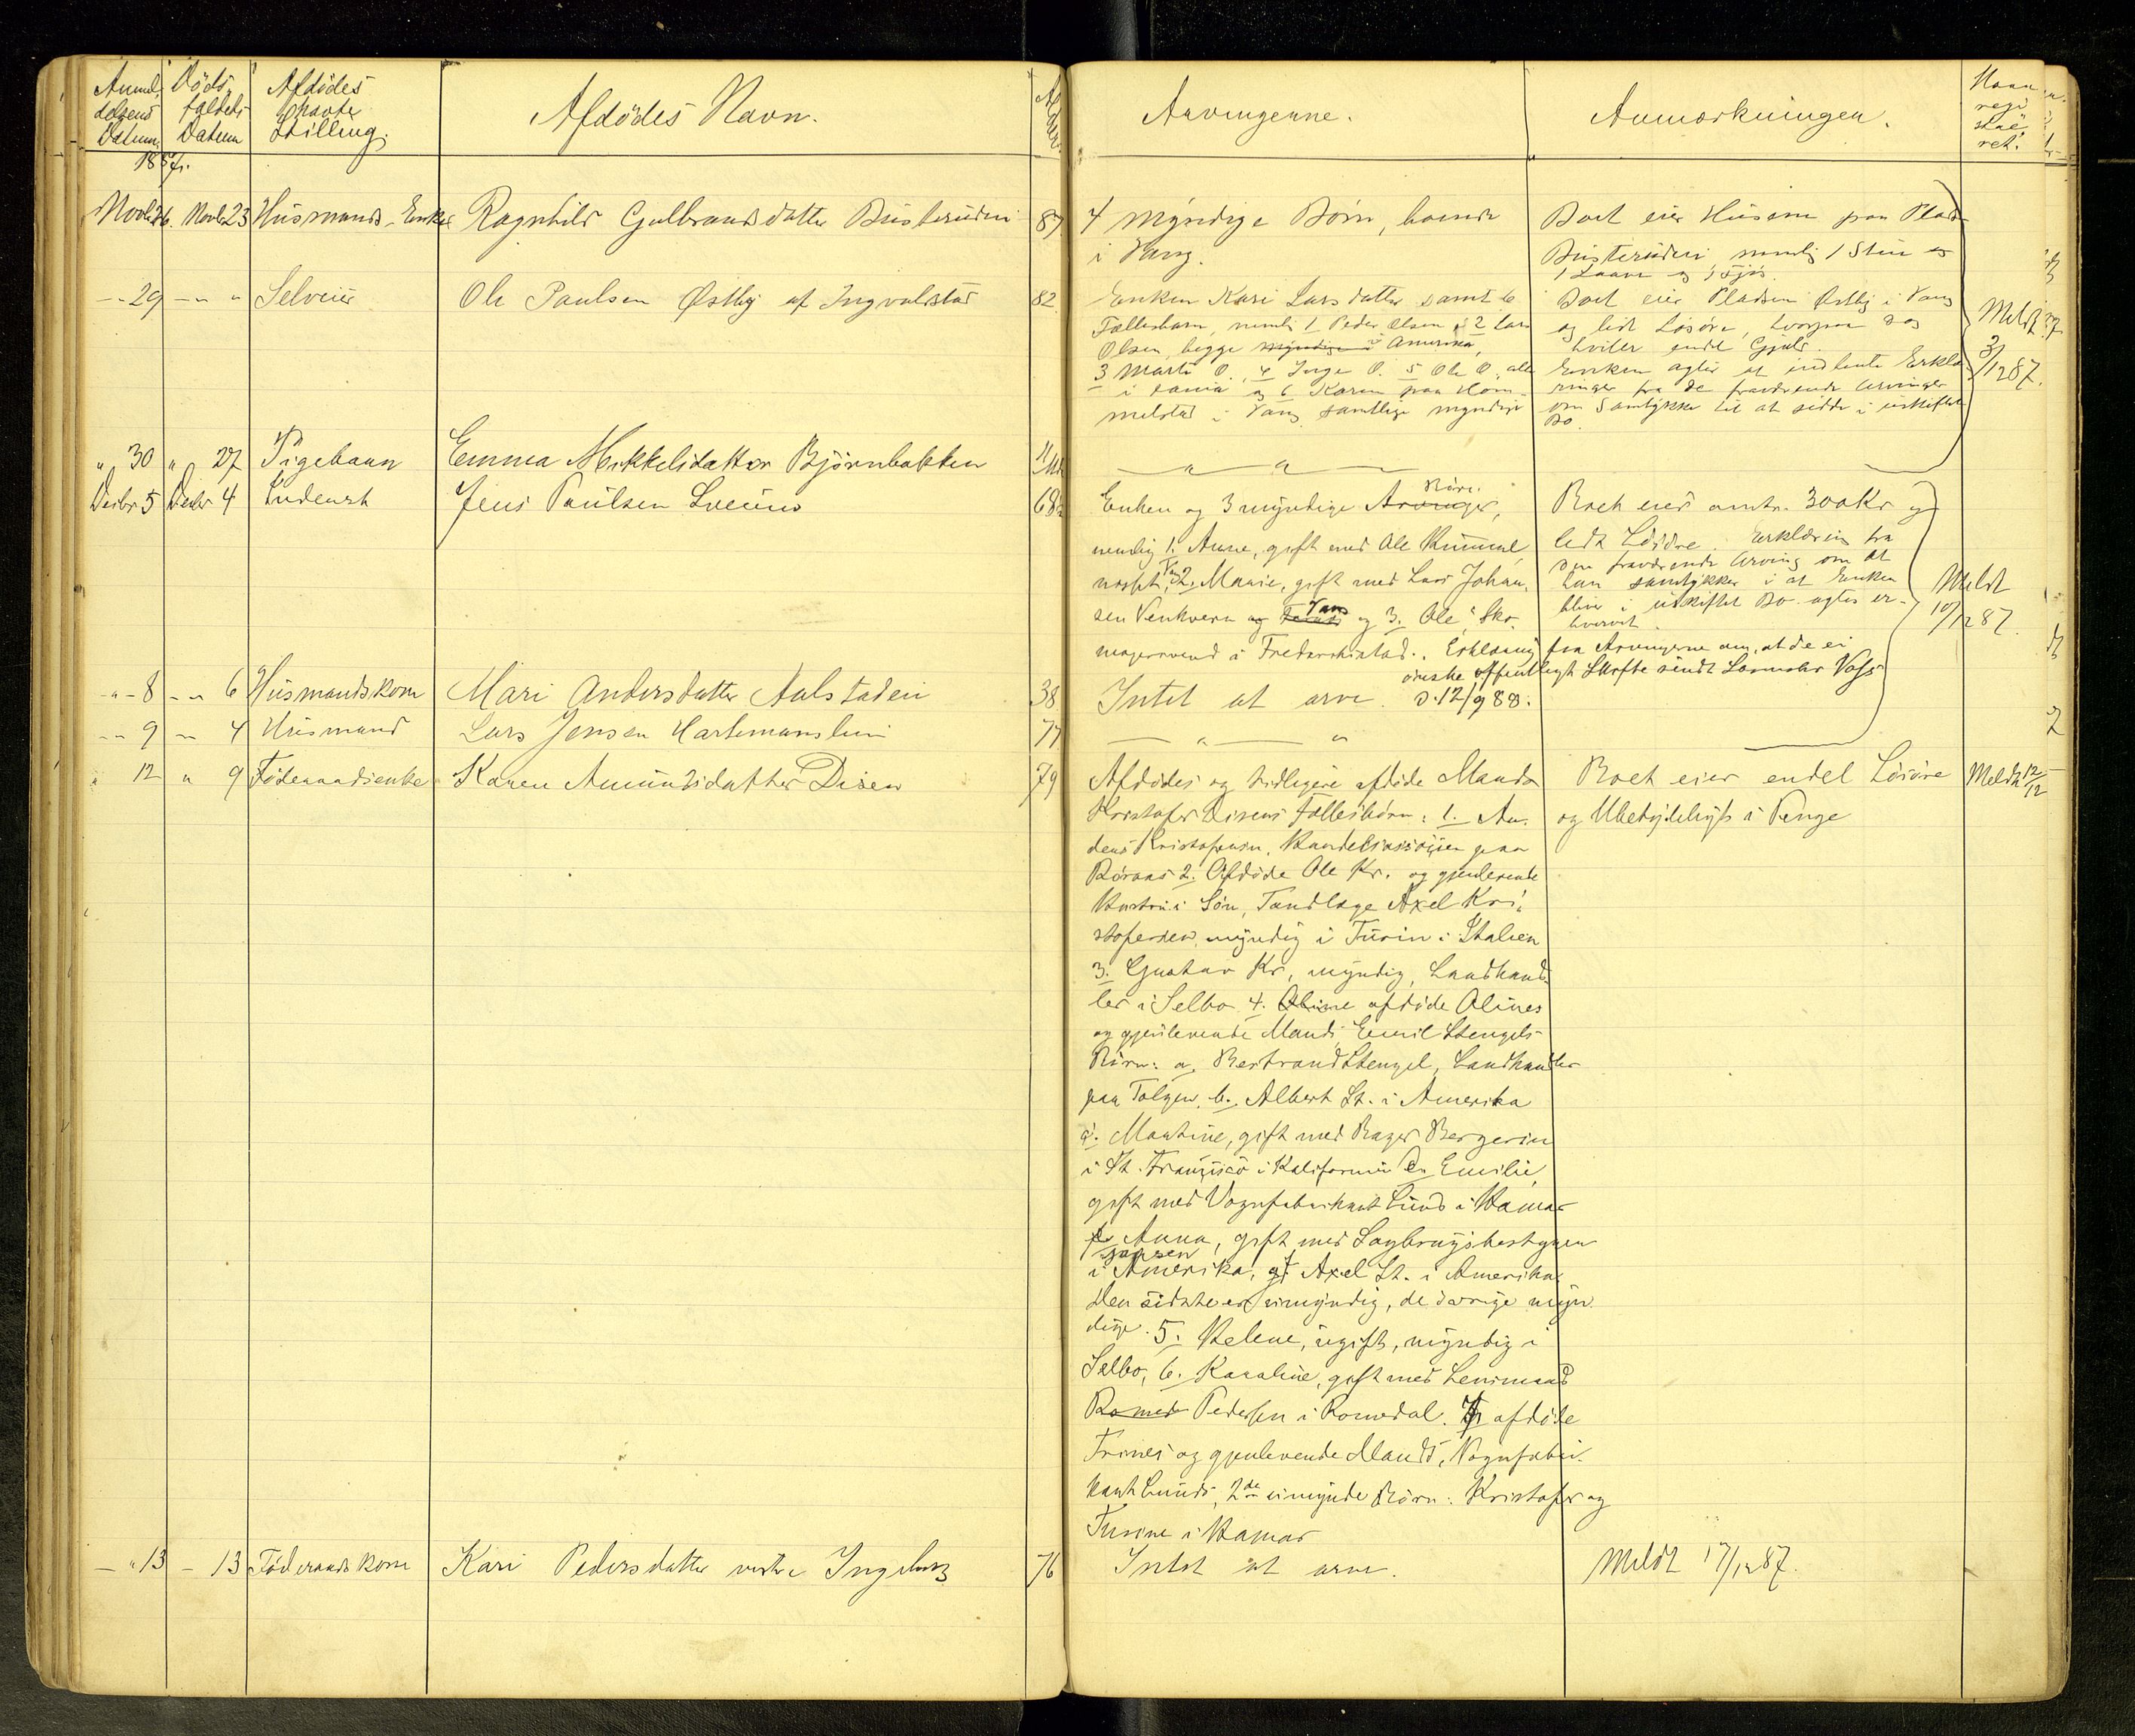 Anmel-
delsens
Datum
Döds-
faldets
Datum
Afdödes
Stilling.
Afdödes Navn.
Alder.
Arvingerne.
Anmærkninger.
Naar
regi
stre
ret.
1887.
Novbr 26. Novbr 23 Husmands-Enke Ragnhild Gulbrandsdatter Busterüden 87
4 myndige Börn, boende
i Vang.
Boet eier Husene paa Plads
Busterüden, nemlig 1 Stue og
1 Laave og 1 Fjös.
29 Selveier Ole Paulsen Østby af Ingvaldstad 82
Enken Kari Larsdatter samt 6
Fællesbarn, nemlig 1 Peder Olsen, 2 Lars
Olsen, begge myndige i Amerika,
3 Marte O., 4 Inge O. 5 Ole O., alle
og 6 Karen paa Hom-
melstad i Vang samtlige myndige
Boet eier Pladsen Østby i Vang
og lidt Lösöre, hvorpaa dog
hviler endel Gjæld.
Enken agter at indhente Erklæ-
ringer fra de fraværende Arvinger
om Samtykke til at sidde i uskiftet
Bo.
Meldt
3/12 87.
" 30 " 27 Pigebarn Emma Mikkelsdatter Björnbakken 11
Decbr 5 Decbr 4 Inderst Jens Paulsen Sveen 68
Enken og 3 myndige Arvinger, Börn.
nemlig 1. Anne, gift med Ole
Vang 2. Marie, gift med Lars Johan-
sen Venkvern og Vang og 3. Ole, Sko-
magersvend i Fredrikstad. Erklæring fra Arvingerne om, at de ei
ønske offentligt Skifte sendt Lensmann
d. 12/9 88.
Boet eier omtr. 300 Kr og
lidt Lösöre. Erklæring fra
den fraværende Arving om at
han samtykker i at Enken
bliver i uskiftet Bo agtes er-
hvervet.
Meldt
10/12 87.
8 6 Husmandskone Mari Andersdatter Aalstadeie 38
Intet at arve.
9 4 Husmand Lars Jensen Hartmanslien 77
12 " 9 Föderaadsenke Karen Amundsdatter Disen 79
Afdödes og tidligere afdöde Mand
Kristofer Disens Fællesbörn: 1. An-
ders Kristofersen, Handelsassosjen paa
Röraas 2. Afdöde Ole Kr. og gjenlevende
Hustru's Sön, Tandlæge Axel Kri-
stofersen, myndig i Turin i Italien
3. Gustav Kr, myndig, Landhand-
ler i Selbo 4. Oline afdöde Olines
og gjenlevende Mands Emil Stengels
Börn: a, Bertrand Stengel, Landhandler
paa Tolgen, b. Albert St. i Amerika
c. Martine, gift med Bager Bergersen
i St. Francisco i Kalifornien d. Emilie,
gift med Vognfabrikant Lund i Hamar
e. Anna, gift med Sagbrugsbestyrer
Jansen
i Amerika, og f. Axel St. i Amerika
Den sidste er umyndig, de övrige myn-
dige. 5. Helene, ugift, myndig i
Selbo, 6. Karoline, gift med Lensmand
Romed Pedersen i Romedal. 7. afdöde
Trines og gjenlevende Mands, Vognfabri-
kant Lunds, 2de umynde Börn: Kristofer og
Trine i Hamar
Boet eier endel Lösöre
og Ubetydeligt i Penge
Meldt 12/12
13 13 Föderaadskone Kari Pedersdatter vestre Ingeberg 76
Intet at arve.
Meldt 17/12 87.